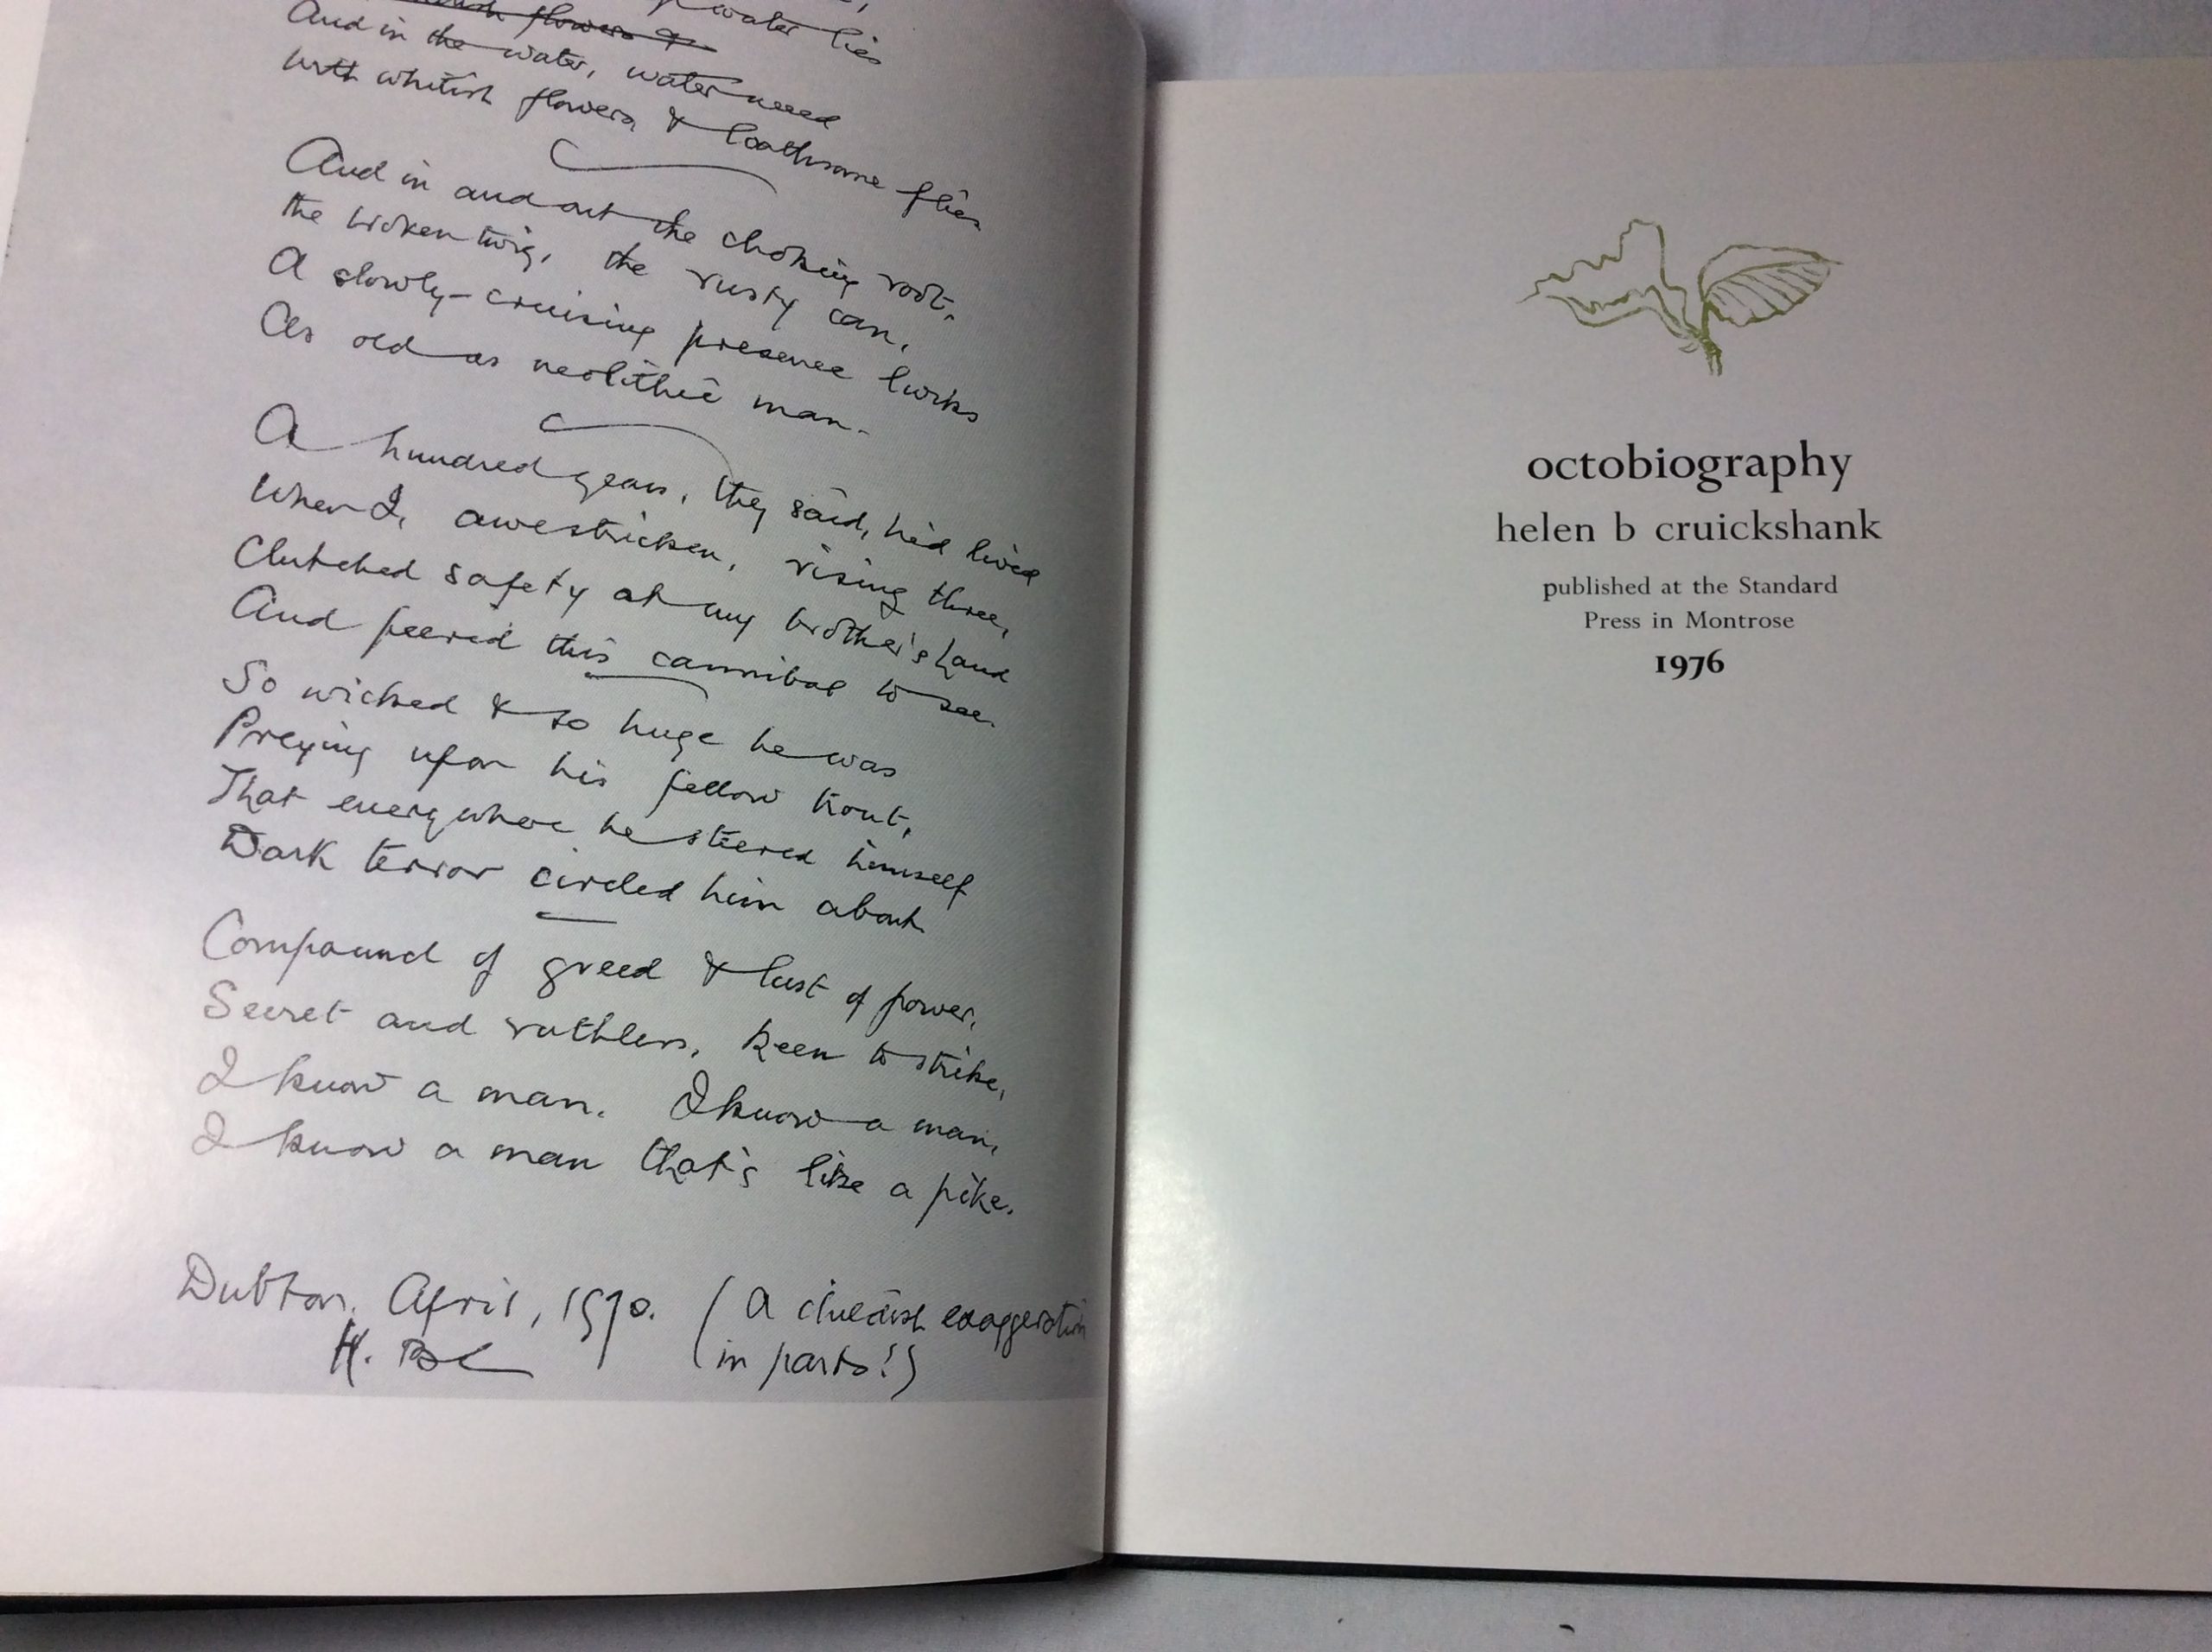 water lies
flowers &
And in the water, water weed
with whitish flowers & loathsome flies
And in and out the choking root,
the broken twig, the rusty can,
A slowly-cruising presence lurks
As old as neolithic man.
A hundred years, they said, he'd lived
When I, awestricken, rising three,
Clutched safety at my brother's hand
And peered this cannibal to see.
So wicked & so huge he was
Preying upon his fellow trout,
That everywhere he steered himself
Dark terror circled him about
Compound of greed & lust of power,
Secret and ruthless, keen to strike,
I know a man. I know a man,
I know a man that's like a pike.
Dubton. April, 1970. (A childish exaggeration
in parts!)
H. B. C
octobiography
helen b cruickshank
published at the Standard
Press in Montrose
1976